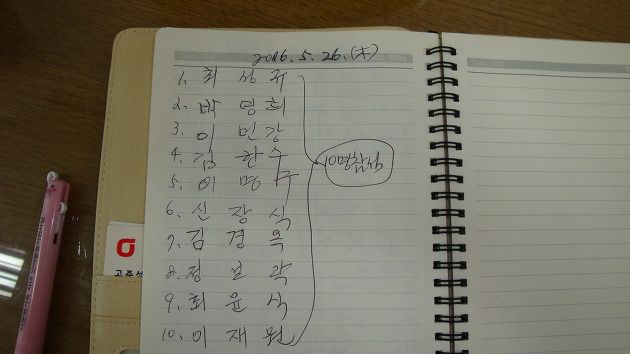 2016. 5. 26. (木)
1. 최 상 규
2. 박 영 희
3. 이 민 강
4. 김 한 수
5. 이 명 우
6. 신 장 식
7. 김 경 옥
8. 정 보 락
9. 최 윤 식
10. 이 재 원
10명참석